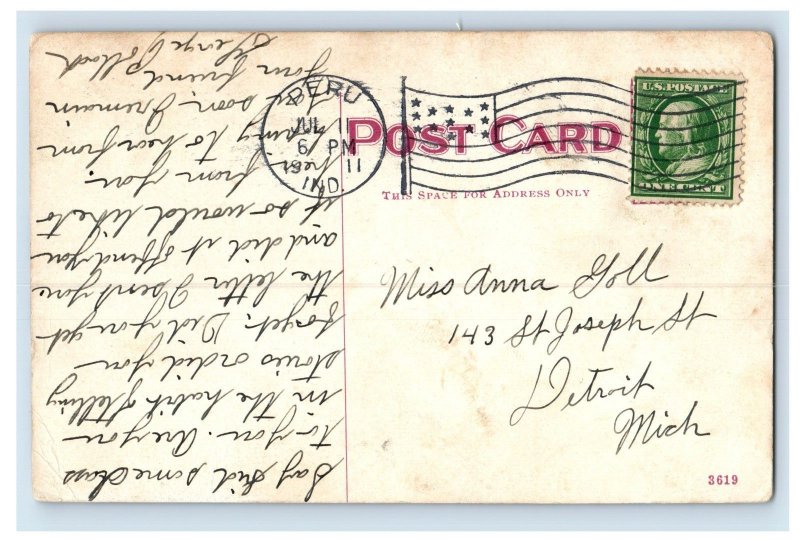 PERU
JUL 11
6 PM
1911
IND.
POST CARD
THIS SPACE FOR ADDRESS ONLY
U.S. POSTAGE
ONE CENT
Miss Anna Goll
143 St Joseph St
Detroit
Mich
3619
Say Kid some class
to you. Are you
in the habit of telling
storis or did you
forget. Did you get
the letter I sent you
and did it offend you
if so would like to
hear from you.
hoping to hear from
you soon. I remain
your friend
George Pollock